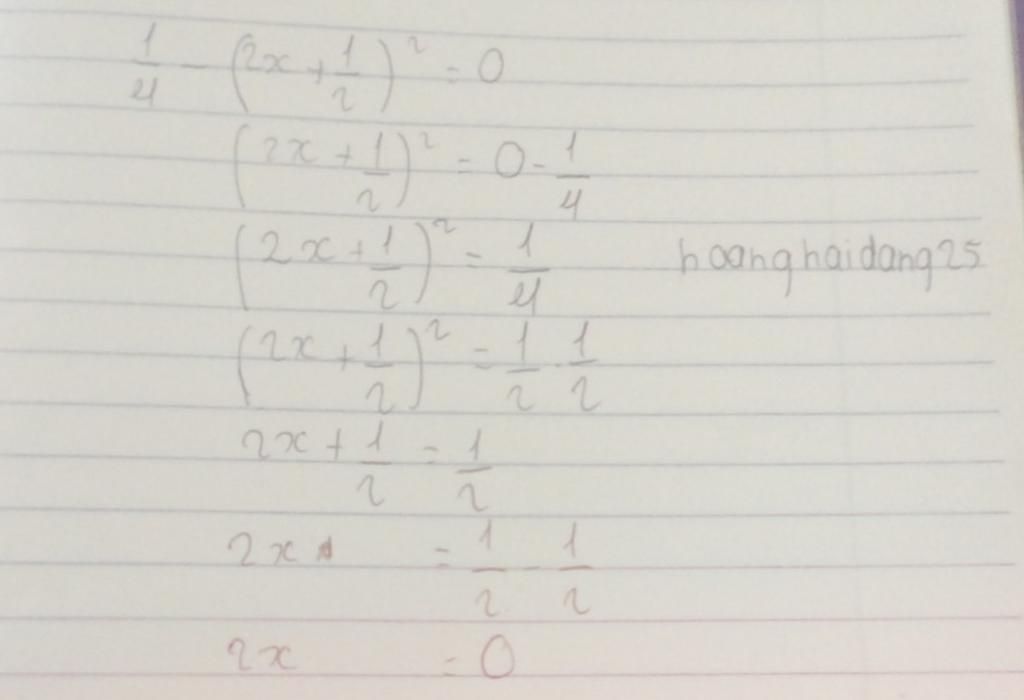 1/4 - (2x + 1/2)² = 0
(2x + 1/2)² = 0 - 1/4
(2x + 1/2)² = 1/4
hoanghaidang25
(2x + 1/2)² = 1/2 . 1/2
2x + 1/2 = 1/2
2x = 1/2 - 1/2
2x = 0